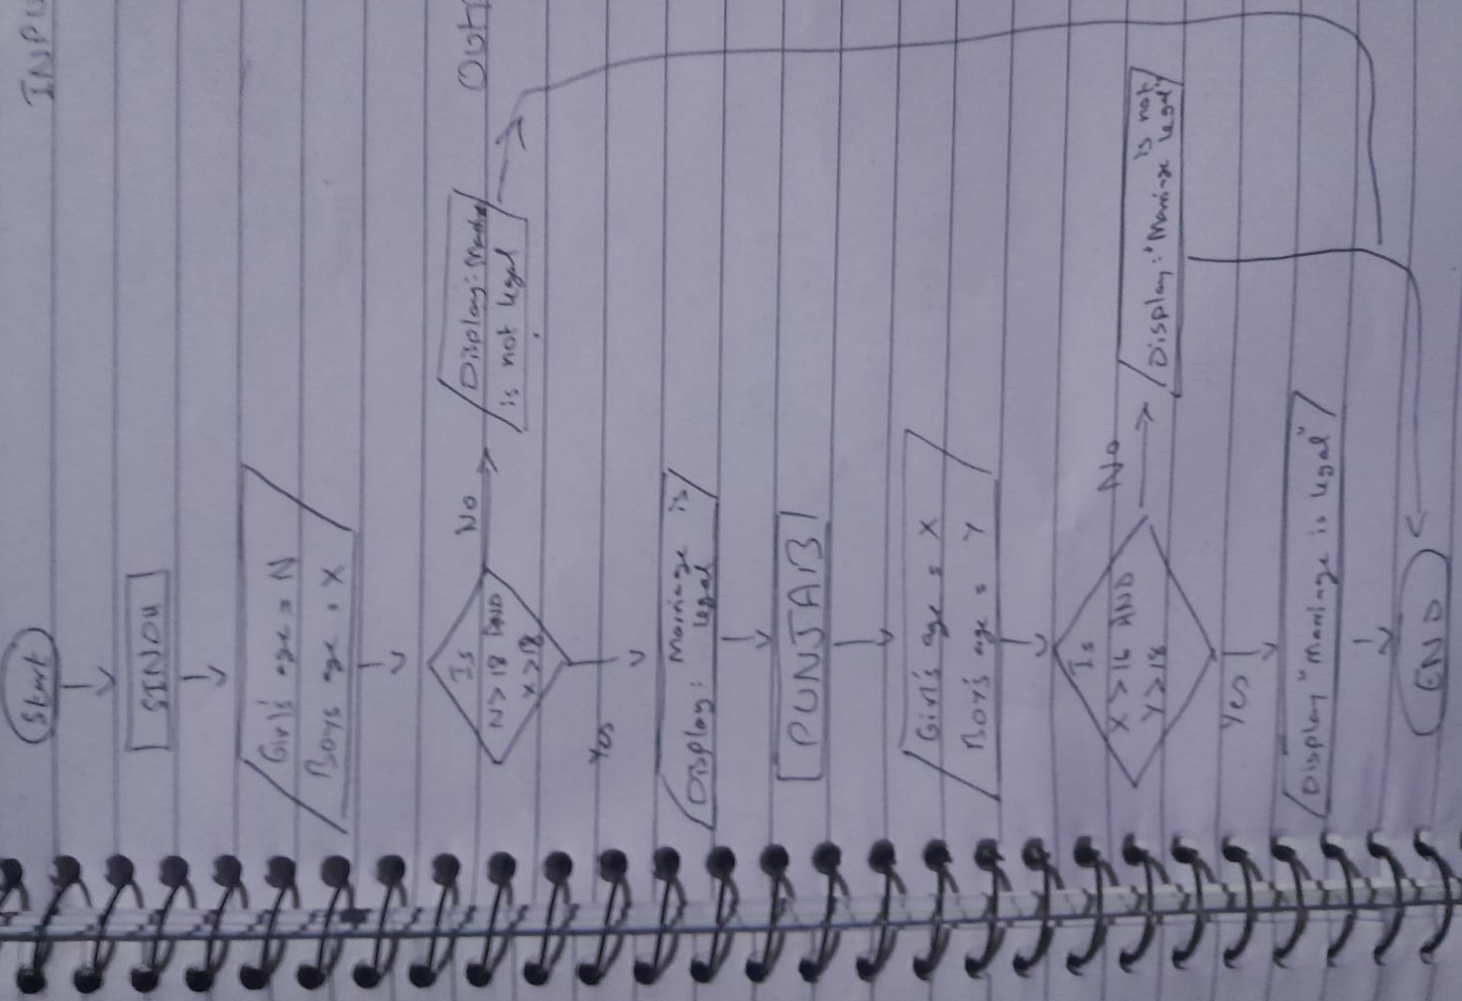 INPU
Start
SINDH
Girl's age = N
Boys age = X
Is
N > 18 AND
X > 18
No
Display: Marriage
is not legal
Out
Yes
Display: Marriage is
legal
PUNJAB
Girl's age = X
Boy's age = Y
Is
X > 16 AND
Y > 18
No
Display: "Marriage is not
legal"
Yes
Display "Marriage is legal"
END